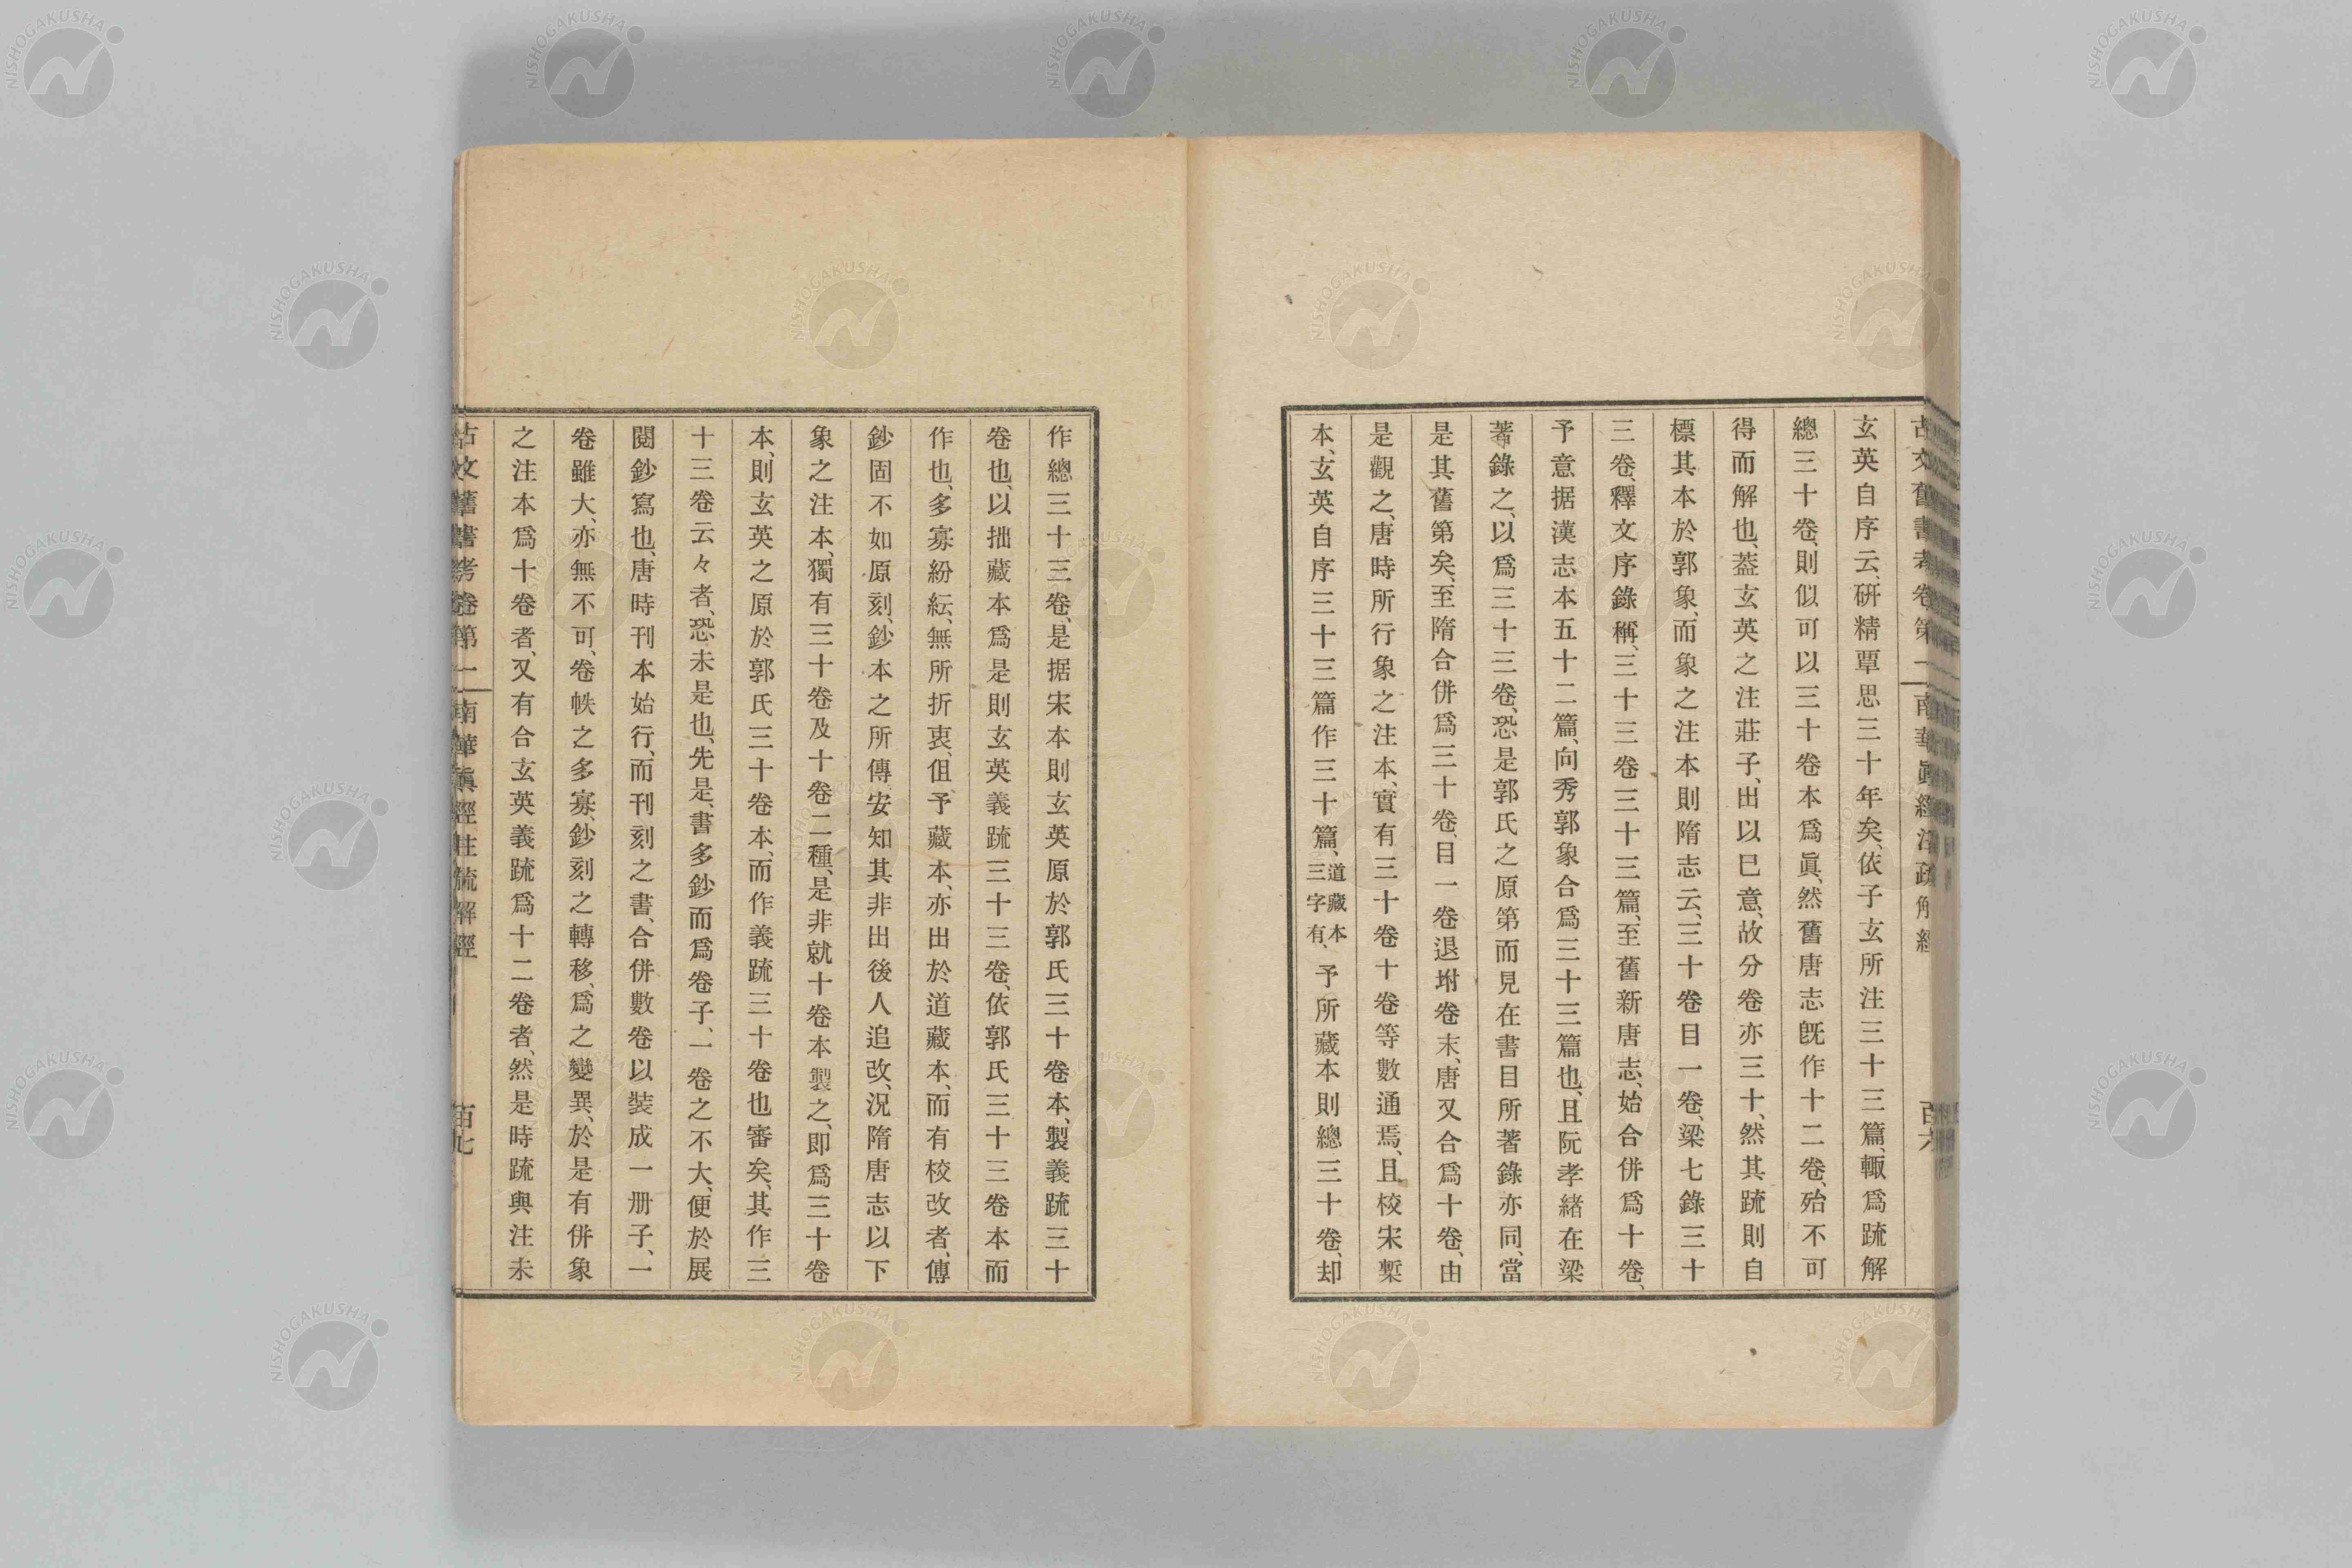 古文舊書考卷第二 南華眞經注疏解經 百六
玄英自序云、研精覃思三十年矣、依子玄所注三十三篇、輙爲䟽解
總三十卷、則似可以三十卷本爲眞、然舊唐志旣作十二卷、殆不可
得而解也、葢玄英之注莊子、出以巳意、故分卷亦三十、然其䟽則自
標其本於郭象、而象之注本則隋志云、三十卷目一卷、梁七錄三十
三卷、釋文序錄稱、三十三卷三十三篇、至舊新唐志、始合併爲十卷、
予意据漢志本五十二篇、向秀郭象合爲三十三篇也、且阮孝緒在梁
著錄之、以爲三十三卷、恐是郭氏之原第而見在書目所著錄亦同、當
是其舊第矣、至隋合併爲三十卷、目一卷退坿卷末、唐又合爲十卷、由
是觀之、唐時所行象之注本、實有三十卷十卷等數通焉、且校宋槧
本、玄英自序三十三篇作三十篇、道藏本三字有、予所藏本則總三十卷、却
作總三十三卷、是据宋本則玄英原於郭氏三十卷本、製義䟽三十
卷也、以拙藏本爲是則玄英義䟽三十三卷、依郭氏三十三卷本而
作也、多寡紛紜、無所折衷、伹予藏本、亦出於道藏本、而有校改者、傳
鈔固不如原刻、鈔本之所傳安知其非出後人追改、況隋唐志以下
象之注本、獨有三十卷及十卷二種、是非就十卷本製之、即爲三十卷
本、則玄英之原於郭氏三十卷本、而作義䟽三十卷也審矣、其作三
十三卷云々者、恐未是也、先是、書多鈔而爲卷子、一卷之不大、便於展
閱鈔寫也、唐時刊本始行、而刊刻之書、合併數卷以裝成一册子、一
卷雖大、亦無不可、卷帙之多寡、鈔刻之轉移、爲之變異、於是有併象
之注本爲十卷者、又有合玄英義䟽爲十二卷者、然是時䟽與注未
古文舊書考卷第二 南華眞經注疏解經 百七